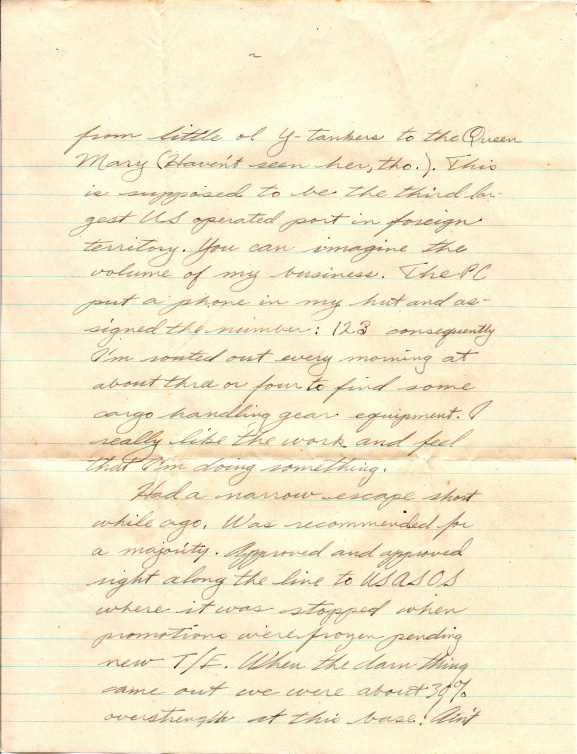 from little ol Y-tankers to the Queen
Mary (Haven't seen her, tho.). This
is supposed to be the third lar-
gest US operated port in foreign
territory. You can imagine the
volume of my business. The PC
put a phone in my hut and as-
signed the number: 123 consequently
I'm routed out every morning at
about three or four to find some
cargo handling gear equipment. I
really like the work and feel
that I'm doing something.
Had a narrow escape short
while ago. Was recommended for
a majority. Approved and approved
right along the line to USASOS
where it was stopped when
promotions were frozen pending
new T/E. When the darn thing
came out we were about 30%
overstrength at this base! Ain't